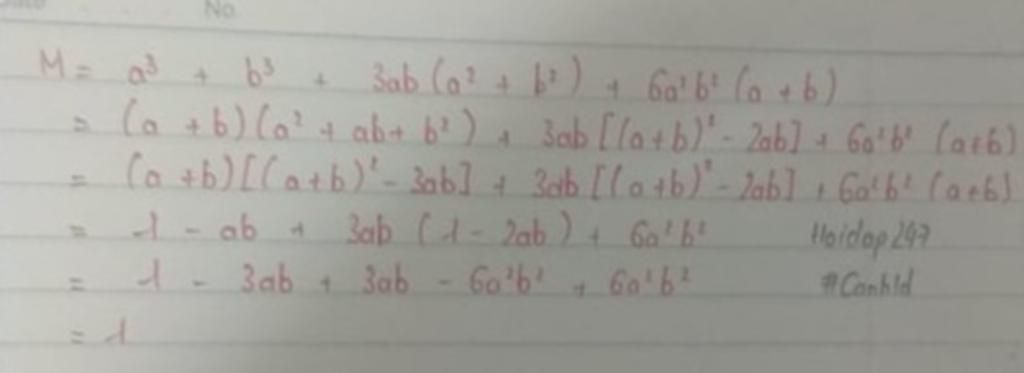 No
M = a³ + b³ + 3ab (a² + b²) + 6a²b² (a + b)
= (a + b)(a² + ab + b²) + 3ab [(a+b)² - 2ab] + 6a²b² (a+b)
= (a + b)[(a+b)² - 3ab] + 3ab [(a+b)² - 2ab] + 6a²b² (a+b)
= 1 - ab + 3ab (1 - 2ab) + 6a²b² Hoidap247
= 1 - 3ab + 3ab - 6a²b² + 6a²b² #Canhld
= 1